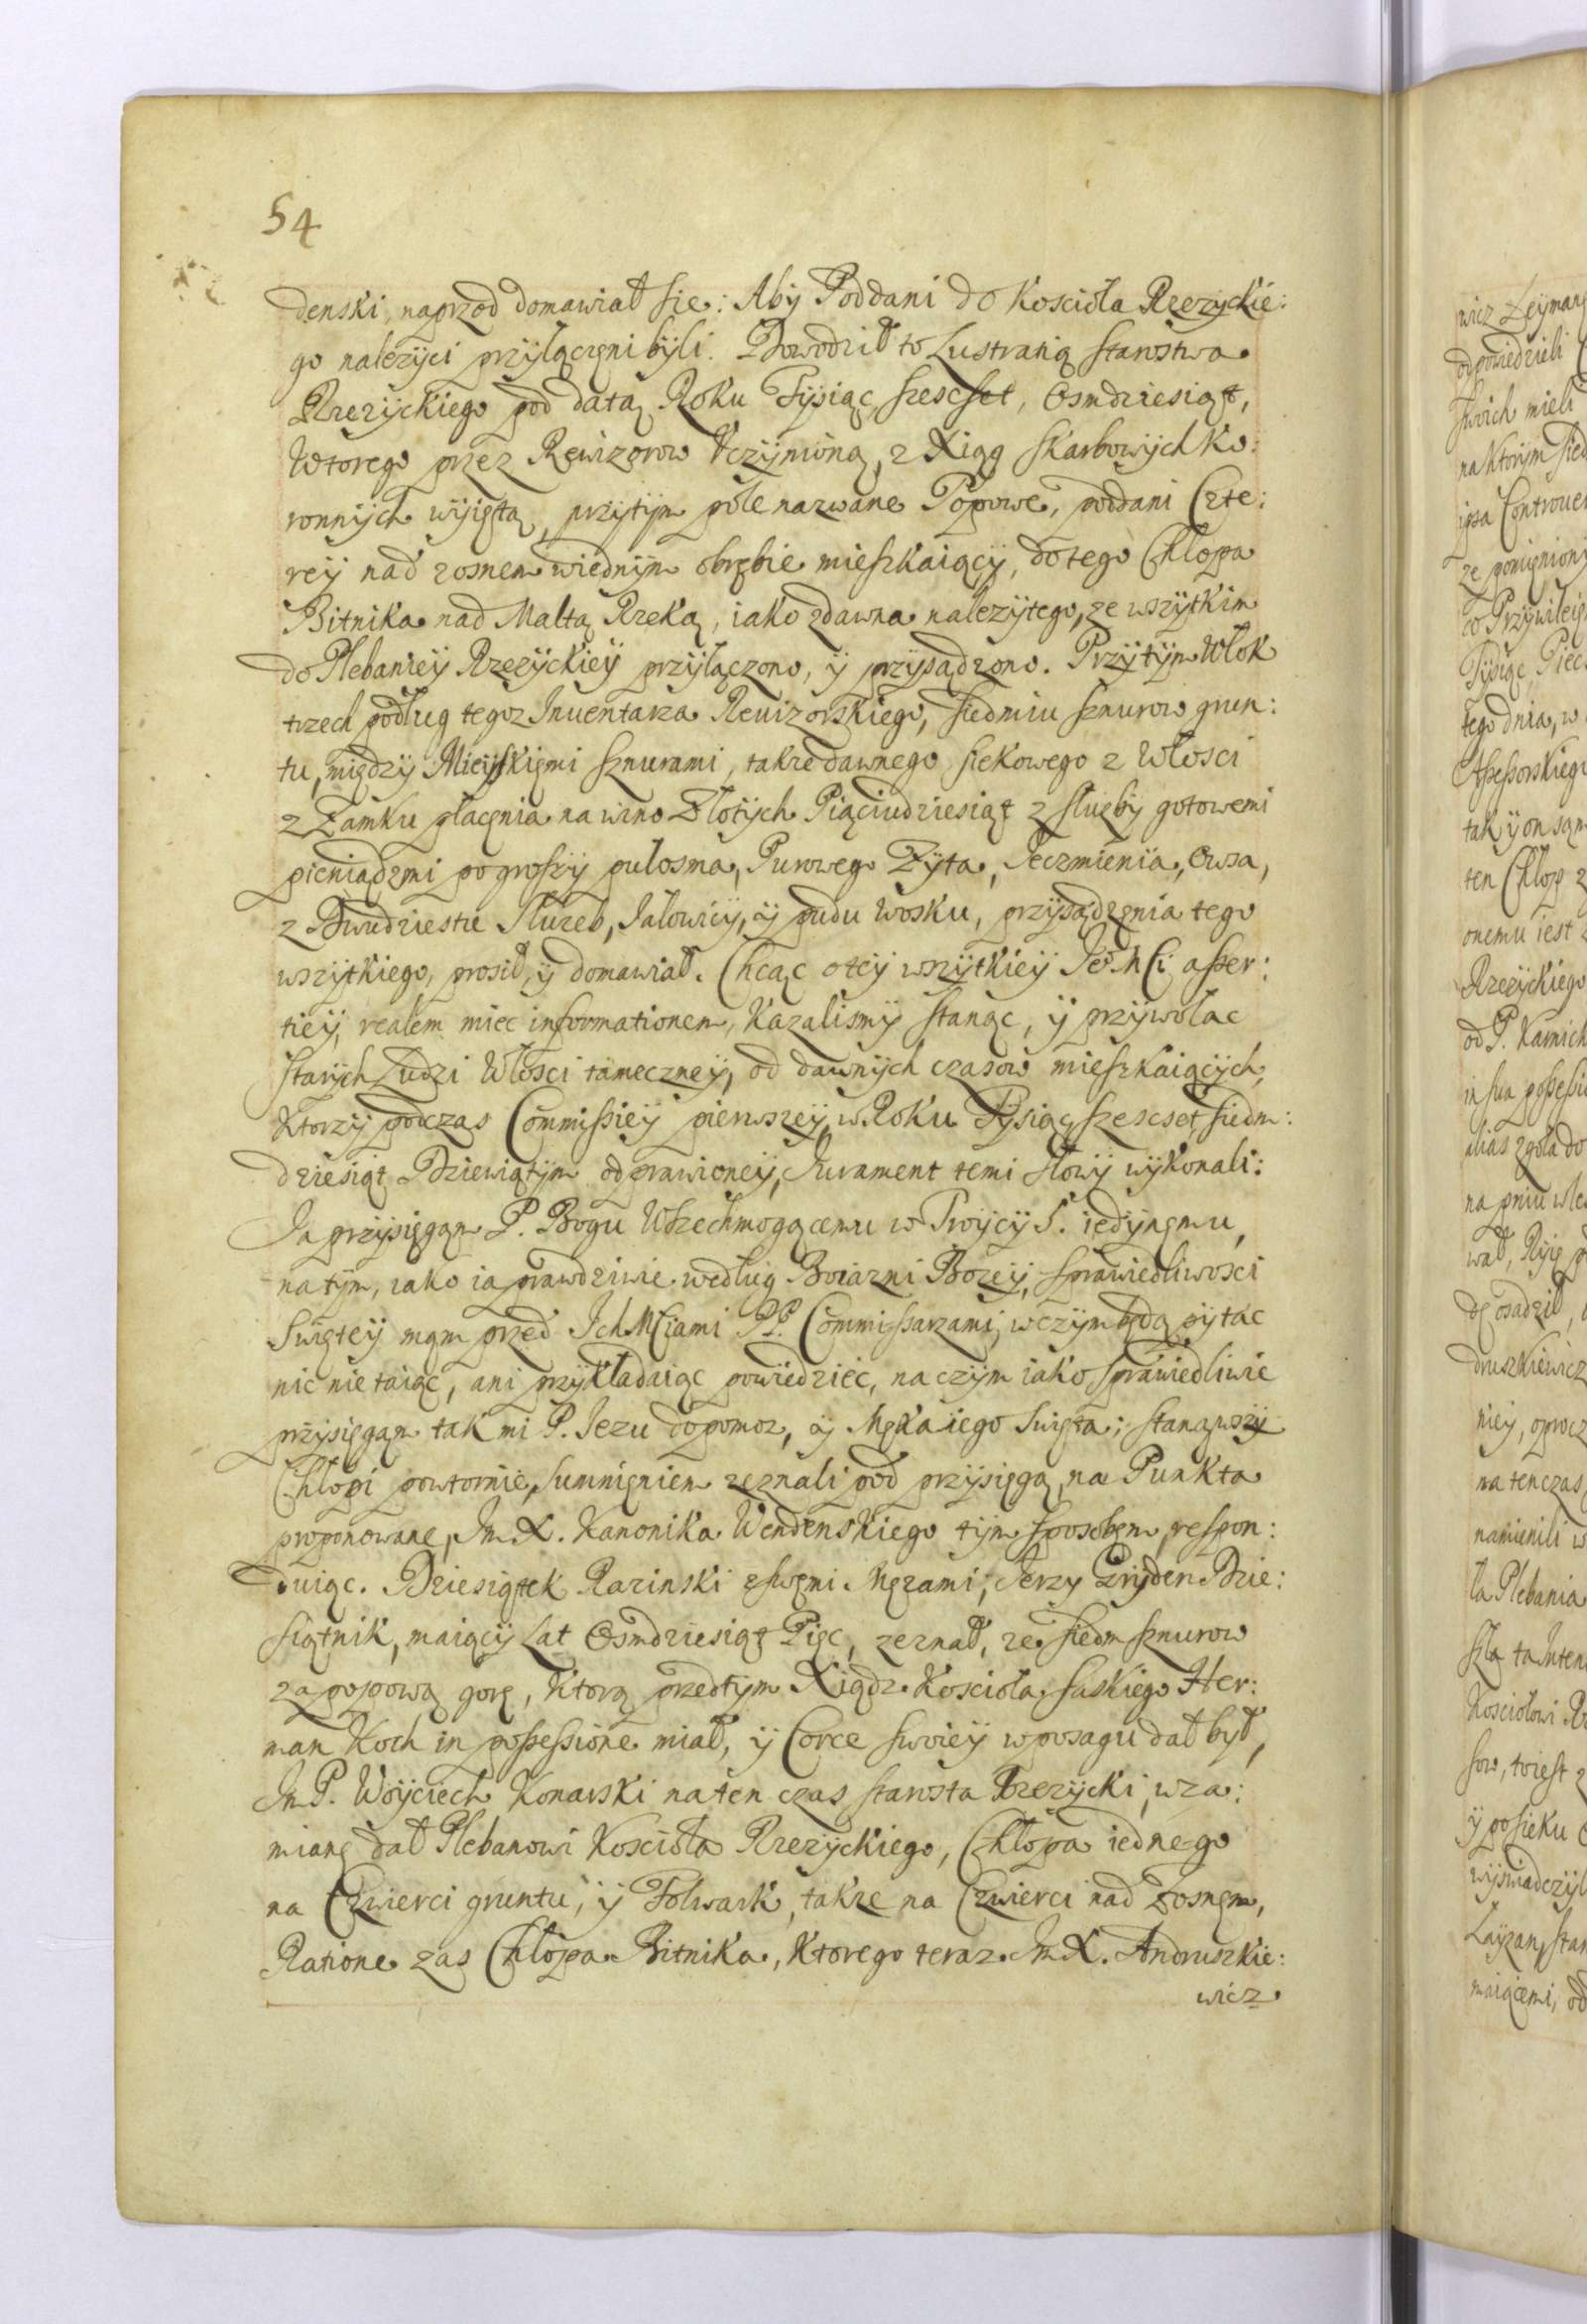 54
denski, naprzod domawiał się: Aby Poddani do Koscioła Rzezyckie:
go nalezyci przyłączeni byli. Dowodził to Lustratią starostwa
Rzezyckiego pod datą Roku Tysiąc szescset, Osmdziesiąt,
Wtorego przez Rewizorow Vczynioną, z Xiąg skarbowych Ko:
ronnych wyiętą, przytym pole nazwane Popowe, poddani Czte:
rey nad zosnem wiednym obrębie mieszkaiący, dotego Chłopa
Bitnika nad Maltą Rzeką, iako zdawna nalezytego, ze wszytkim
do Plebaniey Rzezyckiey przyłączono, y przysądzono. Przytym Włok
trzech podług tegoz Inuentarza Reuizorskiego, siedmiu sznurow grun:
tu, między Mieyskiemi sznurami, takze dawnego siekowego z Włosci
z Zamku płacenia na wino Złotych Piąciudziesiąt z słuzby gotowemi
pieniądzmi po groszy pulosma, Purowego Zyta, Ieczmienia, Owsa,
z Dwudziestu Słuzeb, Iałowicy, y pudu Wosku, przysądzenia tego
wszytkiego, prosił, y domawiał. Chcąc otey wszytkiey Ieo Mści asser:
tiey, realem miec informationem, Kazalismy stanąc, y przywołac
starych Ludzi Włosci tameczney, od dawnych czasow mieszkaiących,
Ktorzy podczas Commissiey pierwszey, w Roku Tysiąc szescset siedm:
dziesiąt Dziewiątym odprawioney, Iurament temi słowy wykonali:
Ia przysięgam P. Bogu Wszechmogącemu w Troycy S. iedynemu,
natym, iako ia prawdziwie według Boiazni Bozey, sprawiedliwosci
Swiętey mam przed Ich Mściami PP. Commissarzami, wczym będą pytac
nic nie taiąc, ani przykładaiąc powiedziec, na czym iako sprawiedliwie
przysięgam tak mi P. Iezu dopomoz, y Męka iego Swięta; stanąwszy
Chłopi powtornie, sumnieniem zeznali pod przysięgą, na Punkta
proponowane, Im X. Kanonika Wendenskiego tym sposobem, respon:
duiąc. Dziesiątek Razinski zswemi Męzami; Ierzy Gryden Dzie:
siątnik, maiący Lat Osmdziesiąt Pięc, zeznał, ze siedm sznurow
za popową gorę, Ktorą przedtym Xiądz Koscioła, saskiego Her:
man Koch in possessione miał, y Corce swoiey wposagu dał był,
Im P. Woyciech Konarski na ten czas starosta Rzezycki, wza:
mianę dał Plebanowi Koscioła Rzezyckiego, Chłopa iednego
na Czwierci gruntu, y Folwark, takze na Czwierci nad Zosnem,
Ratione zas Chłopa Bitnika, Ktorego teraz Im X. Andruszkie:
wicz